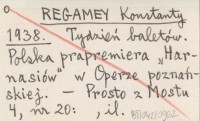 REGAMEY Konstanty
1938. Tydzień baletów.
Polska prapremiera „Har-
nasiów" w Operze poznań-
skiej. – Prosto z Mostu
4, nr 20: , il.